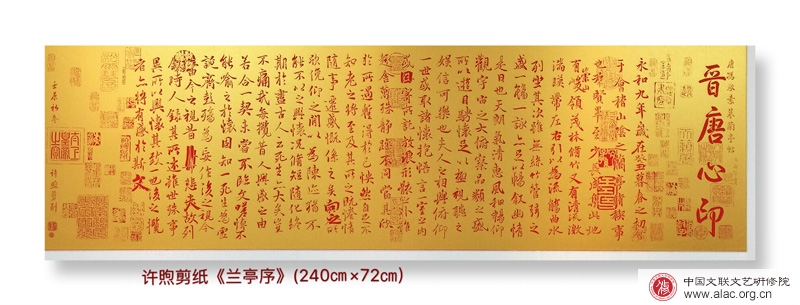 晋唐心印
唐馮承素摹蘭亭帖
永和九年歲在癸丑暮春之初會
于會稽山陰之蘭亭脩禊事
也群賢畢至少長咸集此地
有崇山峻領茂林脩竹又有清流激
湍暎帶左右引以為流觴曲水
列坐其次雖無絲竹管弦之
盛一觴一詠亦足以暢叙幽情
是日也天朗氣清惠風和暢仰
觀宇宙之大俯察品類之盛
所以遊目騁懷足以極視聽之
娛信可樂也夫人之相與俯仰
一世或取諸懷抱悟言一室之內
或因寄所託放浪形骸之外雖
趣舍萬殊靜躁不同當其欣
於所遇蹔得於己怏然自足不
知老之將至及其所之既惓情
隨事遷感慨係之矣向之所
欣俛仰之閒以為陳迹猶不
能不以之興懷況脩短隨化終
期於盡古人云死生亦大矣豈
不痛哉每攬昔人興感之由
若合一契未嘗不臨文嗟悼不
能喻之於懷固知一死生為虛
誕齊彭殤為妄作後之視今
亦由今之視昔悲夫故列
叙時人錄其所述雖世殊事
異所以興懷其致一也後之攬
者亦將有感於斯文
许煦剪纸《兰亭序》(240cm×72cm)
中国文联文艺研修院
www.alac.org.cn